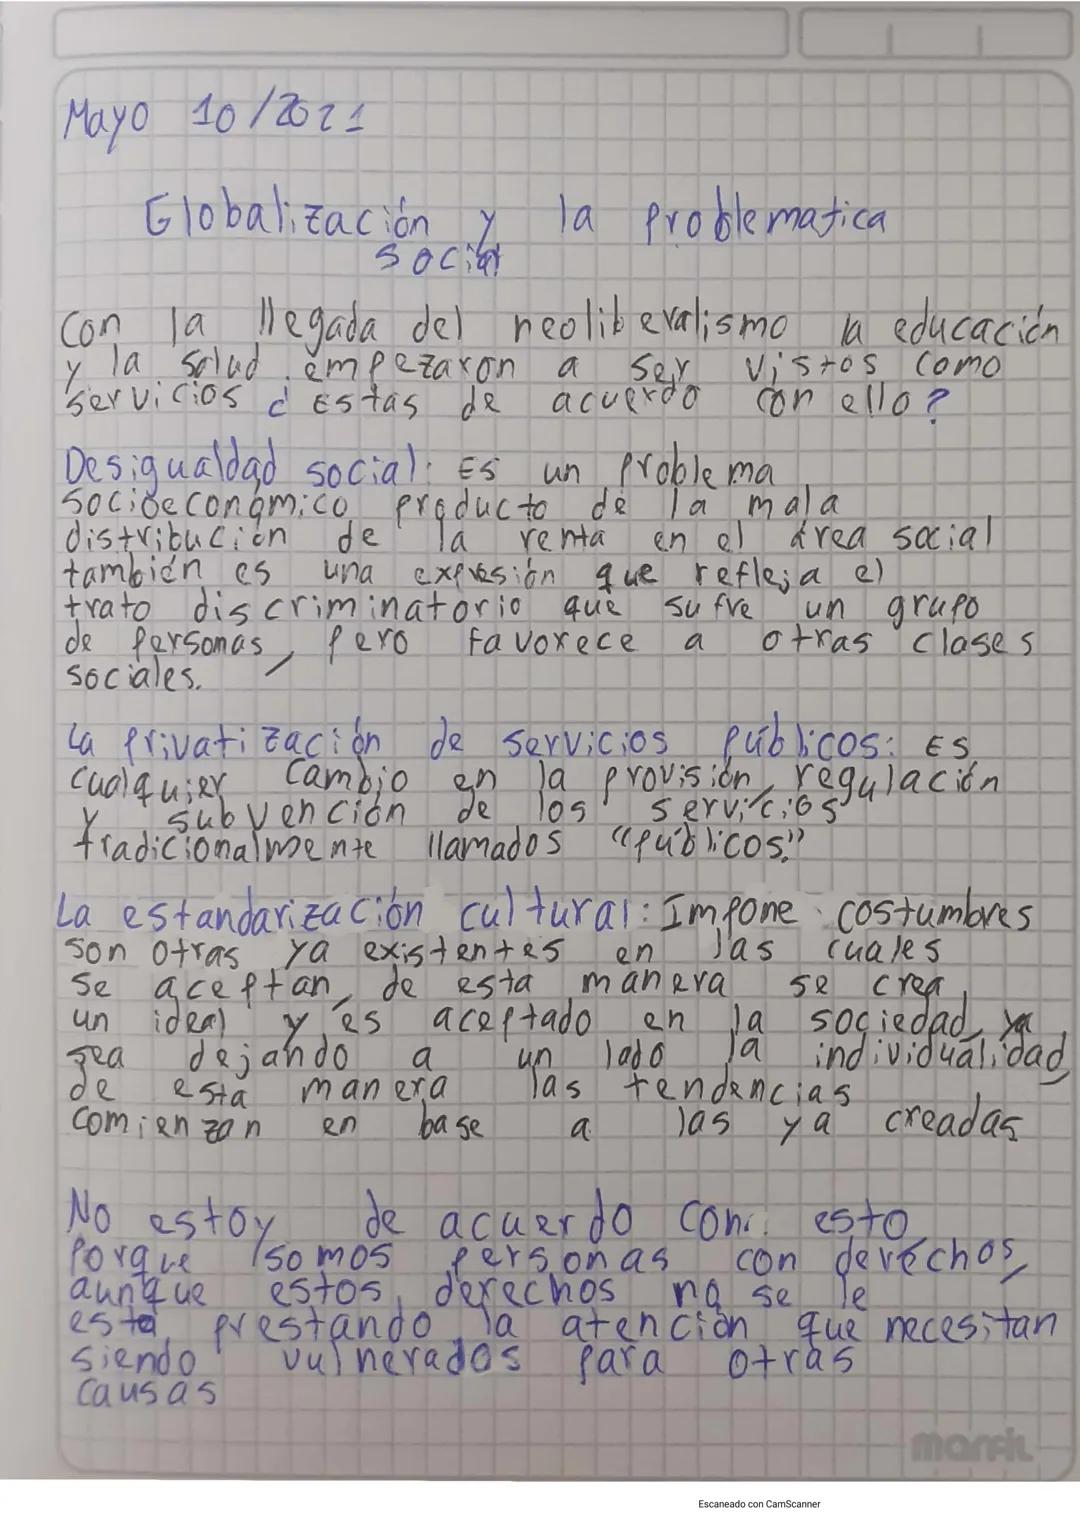 Mayo 10/2021
Globalización y la problematica
social
Con la llegada del neoliberalismo la educación
y la salud empezaron a ser vistos como
servicios ¿Estas de acuerdo con ello?
Desigualdad social: Es un problema
socioeconómico producto de la mala
distribución de la renta en el área social
también es una expresión que refleja el
trato discriminatorio que sufre un grupo
de personas, pero favorece a otras clases
sociales.
La privatización de servicios públicos: Es
cualquier cambio en la provisión, regulación
y subvención de los servicios
tradicionalmente llamados "públicos."
La estandarización cultural: Impone costumbres
son otras ya existentes en las cuales
se aceptan, de esta manera se crea
un ideal y es aceptado en la sociedad, ya
sea dejando a un lado la individualidad,
de esta manera las tendencias
comienzan en base a las ya creadas
No estoy de acuerdo con esto
porque somos personas con derechos,
aunque estos derechos no se le
esta prestando la atención que necesitan
siendo vulnerados para otras
causas
marfil
Escaneado con CamScanner